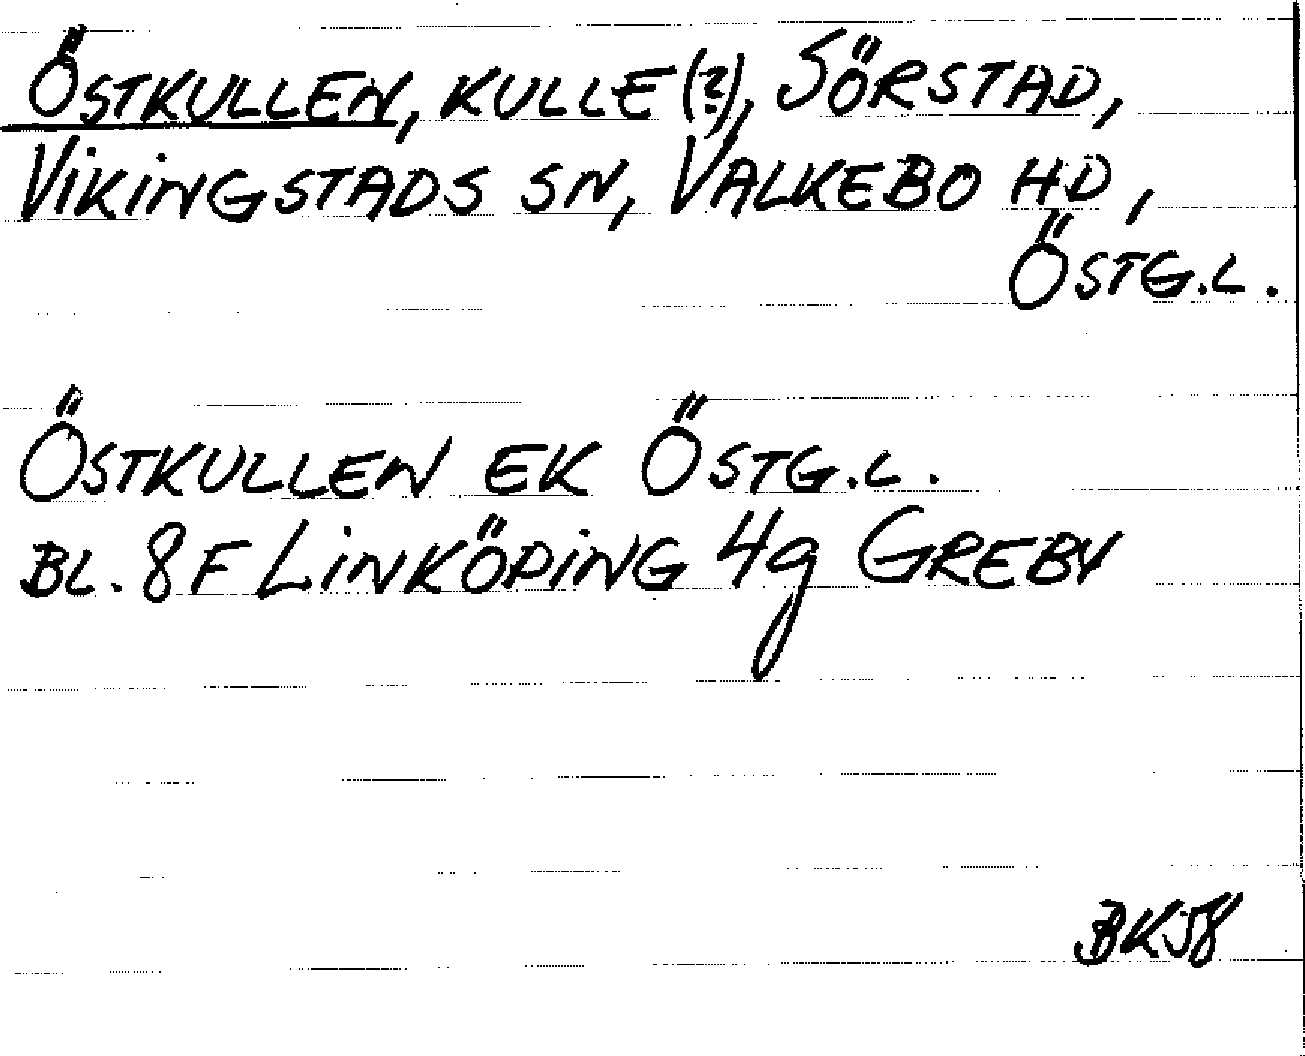 ÖSTKULLEN, KULLE(?), SÖRSTAD,
VIKINGSTADS SN, VALKEBO HD,
ÖSTG.L.
ÖSTKULLEN EK ÖSTG.L.
BL. 8F LINKÖPING 4g GREBY
BK58